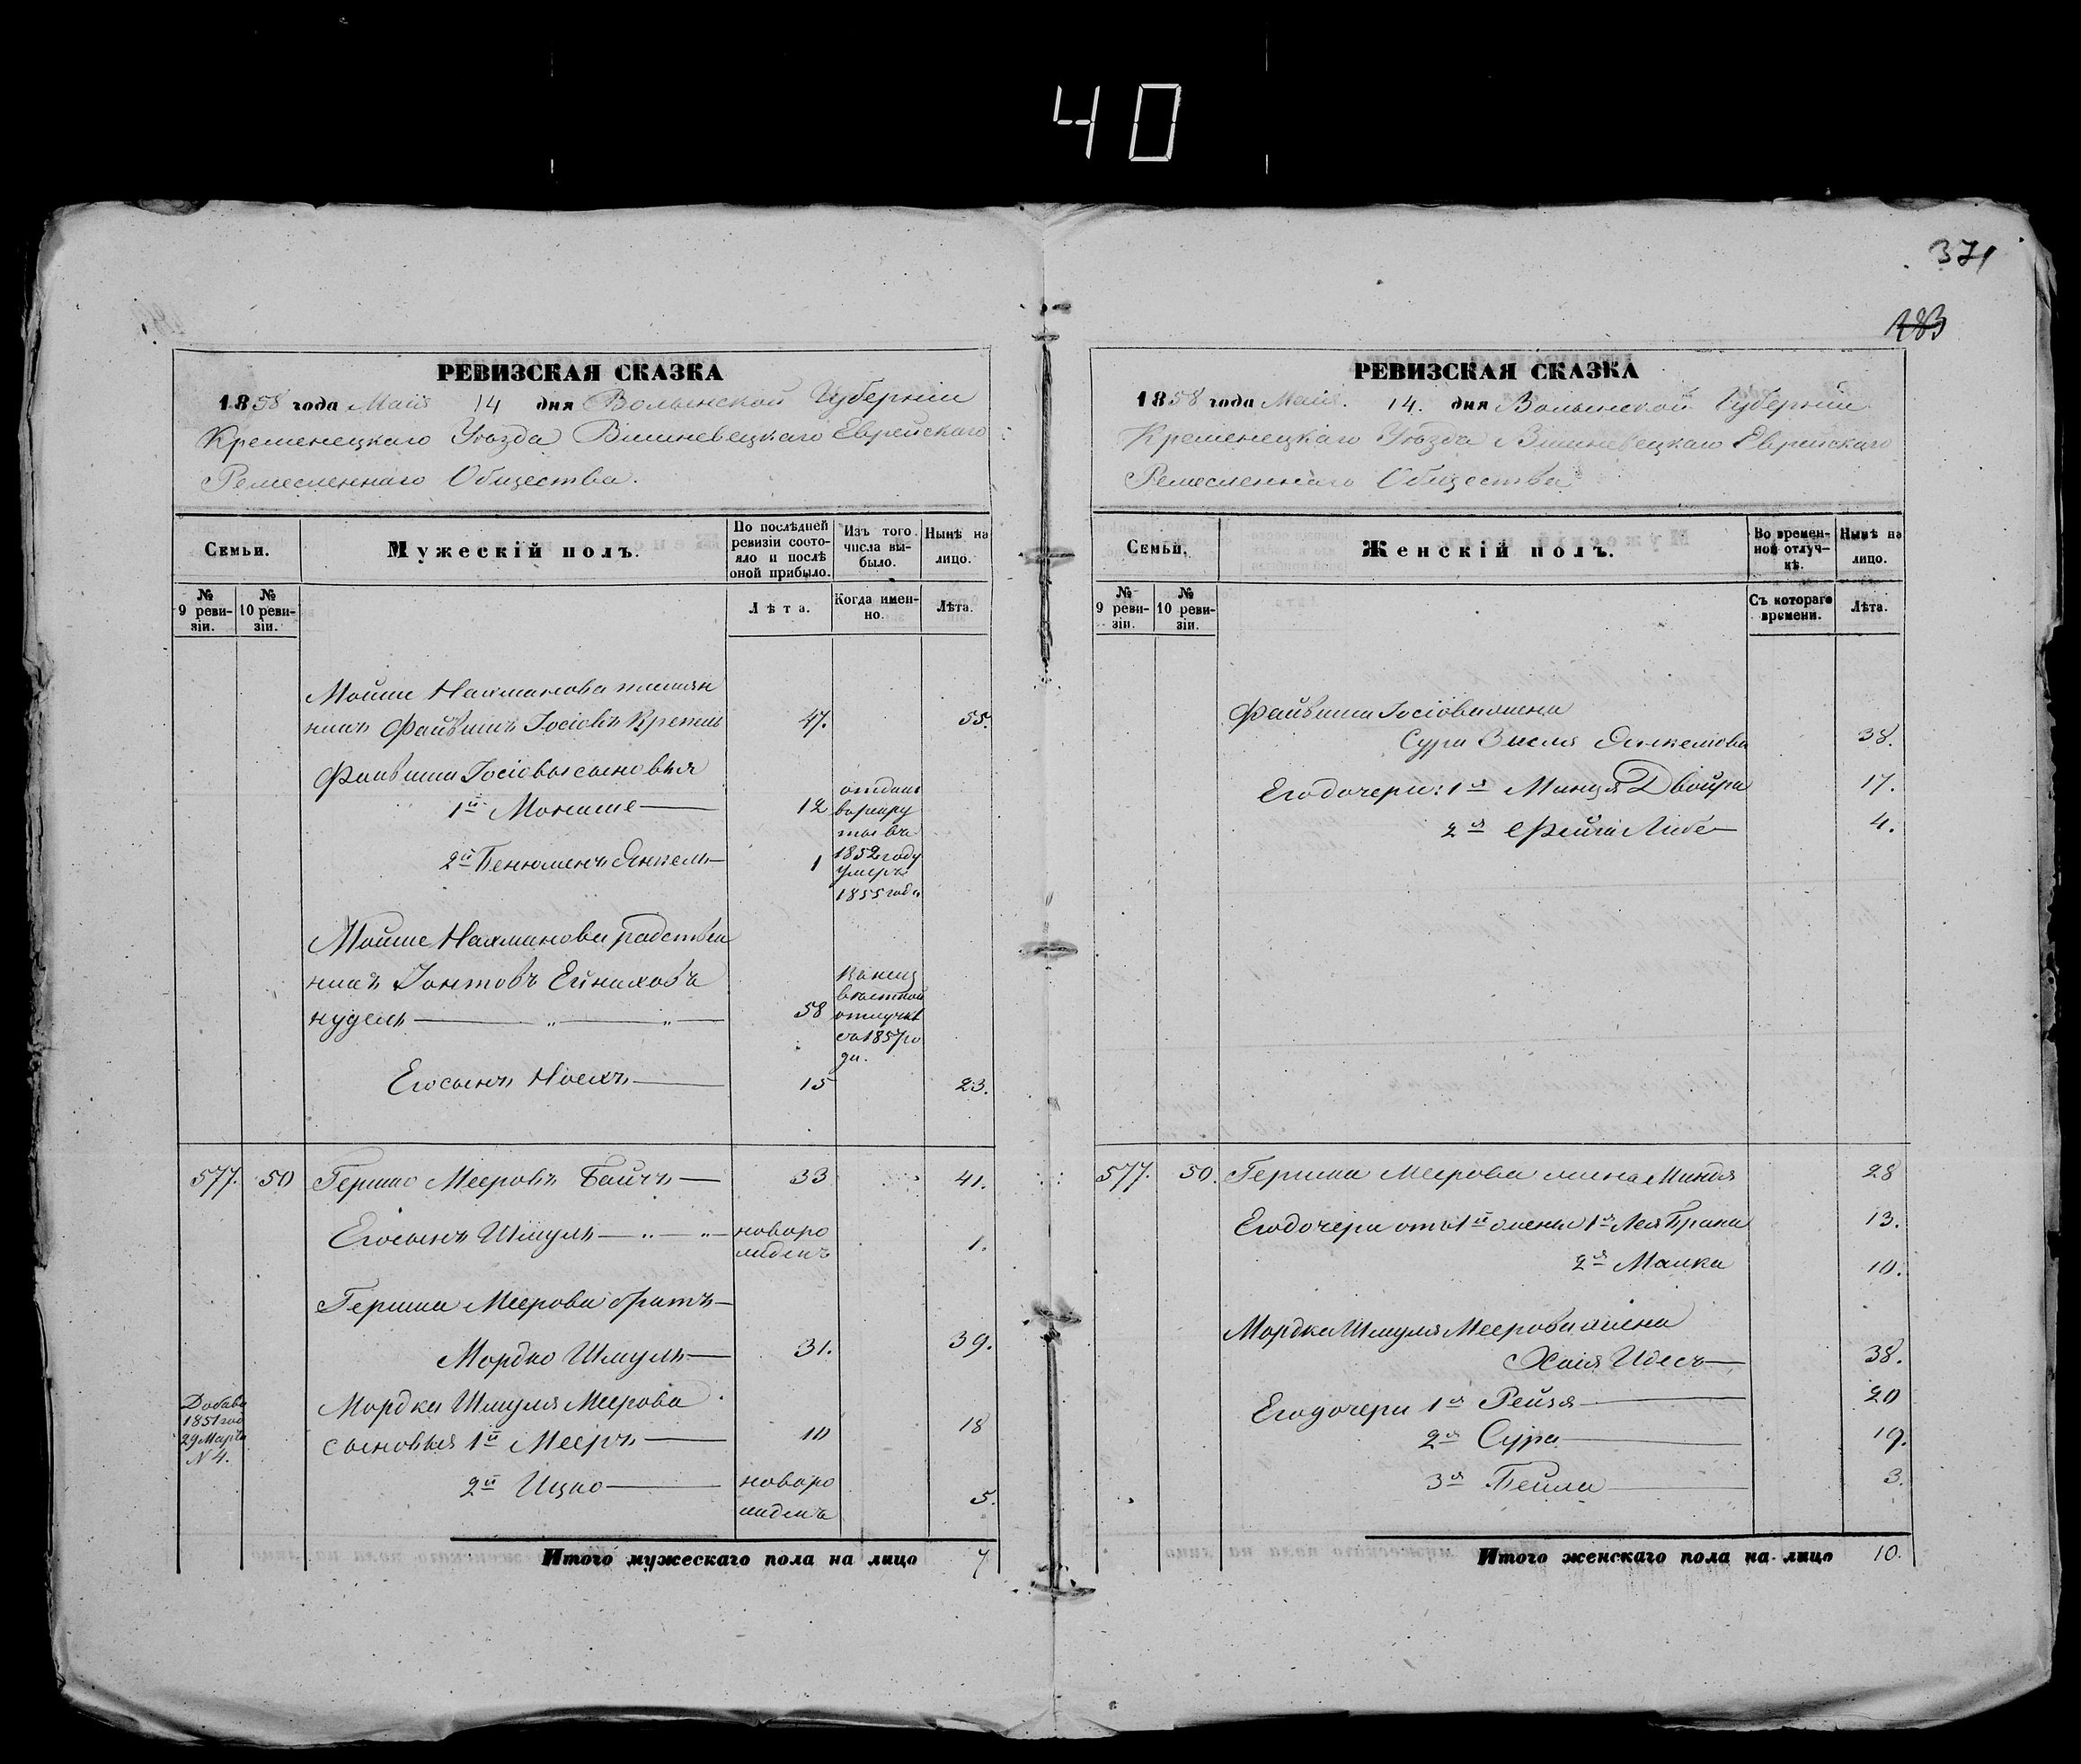 40
371
183
РЕВИЗСКАЯ СКАЗКА
1858 года Маія 14 дня Волынской Губерніи
Кременецкаго Уѣзда Вишневецкаго Еврейскаго
Ремесленнаго Общества.
Семьи.
Мужескій полъ.
По послѣдней ревизіи состояло и послѣ оной прибыло.
Изъ того числа выбыло.
Нынѣ на лицо.
№ 9 ревизіи.
№ 10 ревизіи.
Лѣта.
Когда именно.
Лѣта.
Мойше Нахманова племян
никъ Файвишъ Іосіовъ 47. 55.
Файвиша Іосіовы сыновья
1й Монише 12 отданъ
в рекру
ты въ
1852 году
2й Бенюменъ Янкель 1 умеръ
1855 года
Мойше Нахманова родствен
никъ Іонтовъ Ейнаховъ
нудель 58
отлучкѣ
съ 1857 го
да.
Его сынъ Ноехъ 15 23.
577. 50 Гершко Мееровъ Байчъ 33 41.
Его сынъ Шмуль новоро
жденъ 1.
Гершка Меерова братъ
Мордко Шмуль 31. 39.
Добав.
1851 год
29 Марта
№ 4.
Мордка Шмуля Меерова
сыновья 1й Мееръ 10 18
2й Ицко новоро
жденъ 5.
Итого мужескаго пола на лицо 7
РЕВИЗСКАЯ СКАЗКА
1858 года Маія. 14. дня Волынской Губерніи
Кременецкаго Уѣзда Вишневецкаго Еврейскаго
Ремесленнаго Общества
Семьи.
Женскій полъ.
Во временной отлучкѣ.
Нынѣ на лицо.
№ 9 ревизіи.
№ 10 ревизіи.
Съ котораго времени.
Лѣта.
Файвиша Іосіова жена
Сура Зисля Янкелова 38.
Его дочери: 1я Минця Двойра 17.
2я Фейга Либе 4.
577. 50. Гершка Меерова жена Миндя 28
Его дочери отъ 1й жены 1я Лея Брана 13.
2я Малка 10.
Мордка Шмуля Меерова жена
Хаія Идесъ 38.
Его дочери 1я Рейзя 20
2я Сура 19.
3я Бейла 3.
Итого женскаго пола на лицо 10.